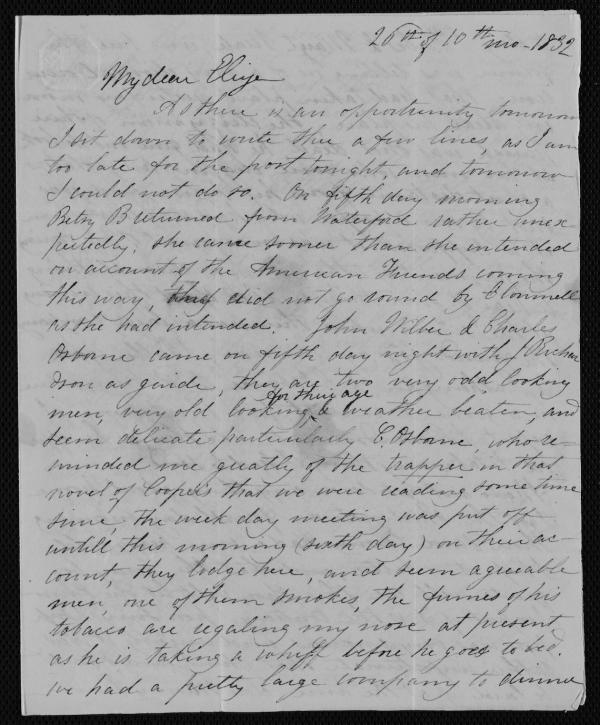 26th of 10th mo - 1832
My dear Eliza
As there is an opportunity tomorrow
I sit down to write thee a few lines, as I am
too late for the post tonight, and tomorrow
I could not do so. On fifth day morning
Betsy B returned from Waterford rather unex
pectedly, she came sooner than she intended
on account of the American Friends coming
this way, did not go round by Clonmell
as she had intended. John Wilbur & Charles
Osborne came on fifth day night with J Richar
dson as guide, they are two very odd looking
men, very old looking for their age & weather beaten, and
seem delicate particularly C. Osborne, who re-
minded me greatly of the trapper in that
novel of Coopers that we were reading some time
since, the week day meeting was put off
untill this morning (sixth day) on their ac-
count, they lodge here, and seem agreeable
men, one of them smokes, the fumes of his
tobacco are regaling my nose at present
as he is taking a whiff before he goes to bed.
we had a pretty large company to dinner